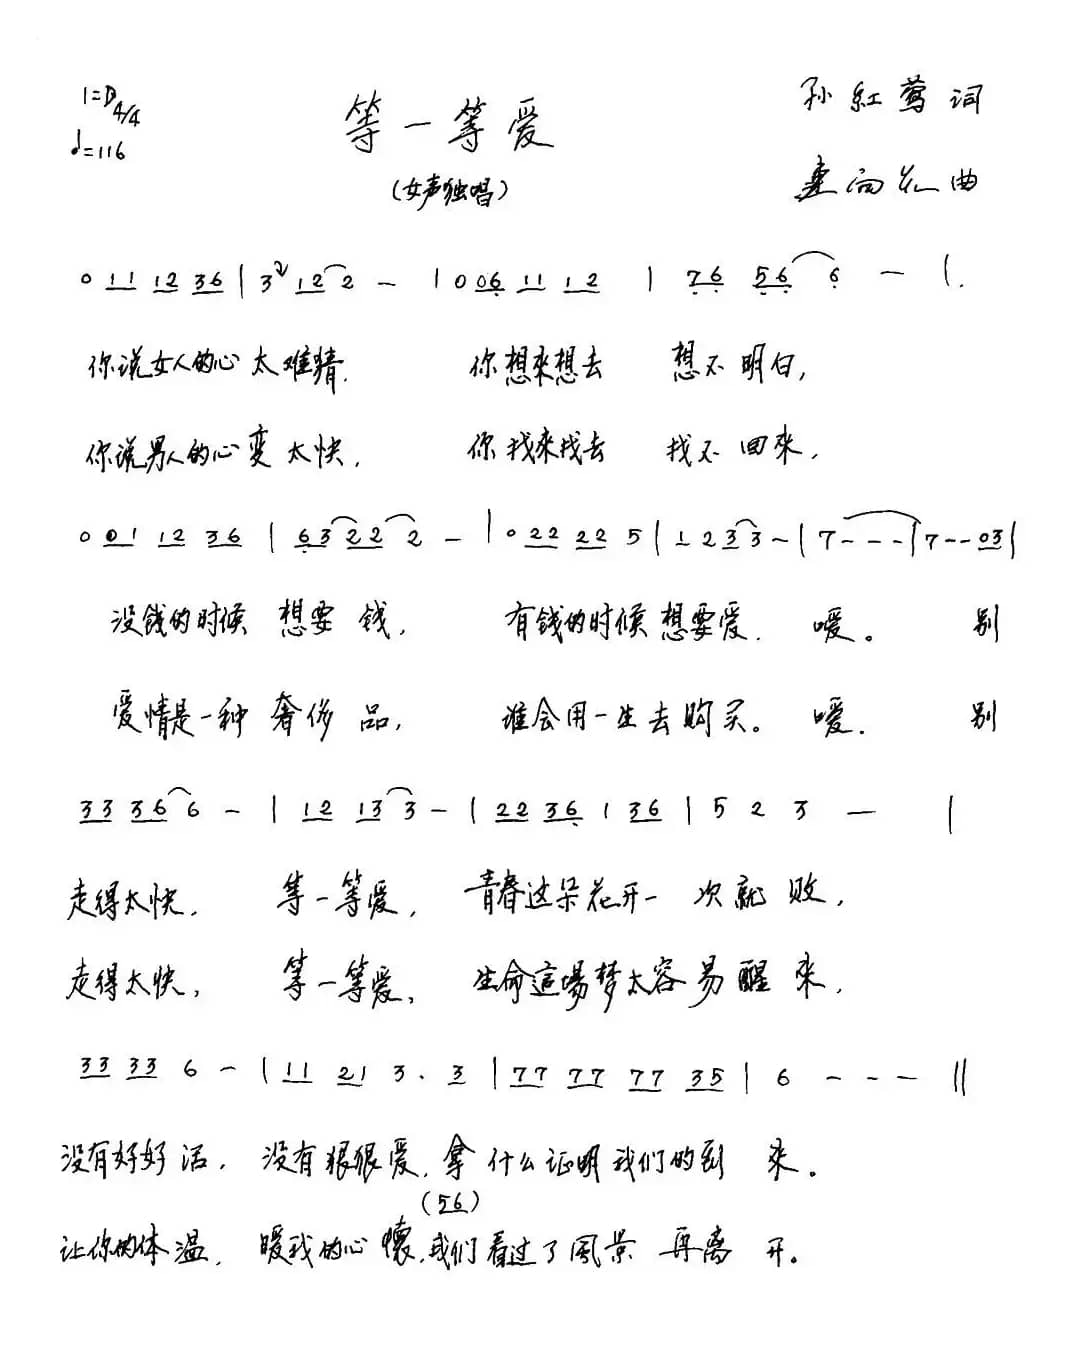 1=D 4/4
♩=116
等一等爱
(女声独唱)
孙紅莺 词
曲
0 11 12 36 | 3 2 12 2 - | 0 06 11 12 | 76 56 6 - |
你说女人的心太难猜. 你想來想去 想不明白,
你说男人的心变太快, 你找来找去 找不回来,
0 01 12 36 | 63 22 2 - | 0 22 22 5 | 1 2 3 3 - | 7 - - - | 7 - - 03 |
没钱的时候 想要 钱, 有钱的时候想要爱. 嗳。 别
爱情是一种奢侈品, 谁会用一生去购买。嗳. 别
33 36 6 - | 12 13 3 - | 22 36 1 36 | 5 2 3 - |
走得太快, 等一等爱, 青春这朵花开一次就败,
走得太快, 等一等爱, 生命這場梦太容易醒来,
33 33 6 - | 11 21 3. 3 | 77 77 77 35 | 6 - - - ||
没有好好活, 没有狠狠爱, 拿什么证明我们的到来。
(56)
让你的体温, 暖我的心懷,我们看过了風景再离开。